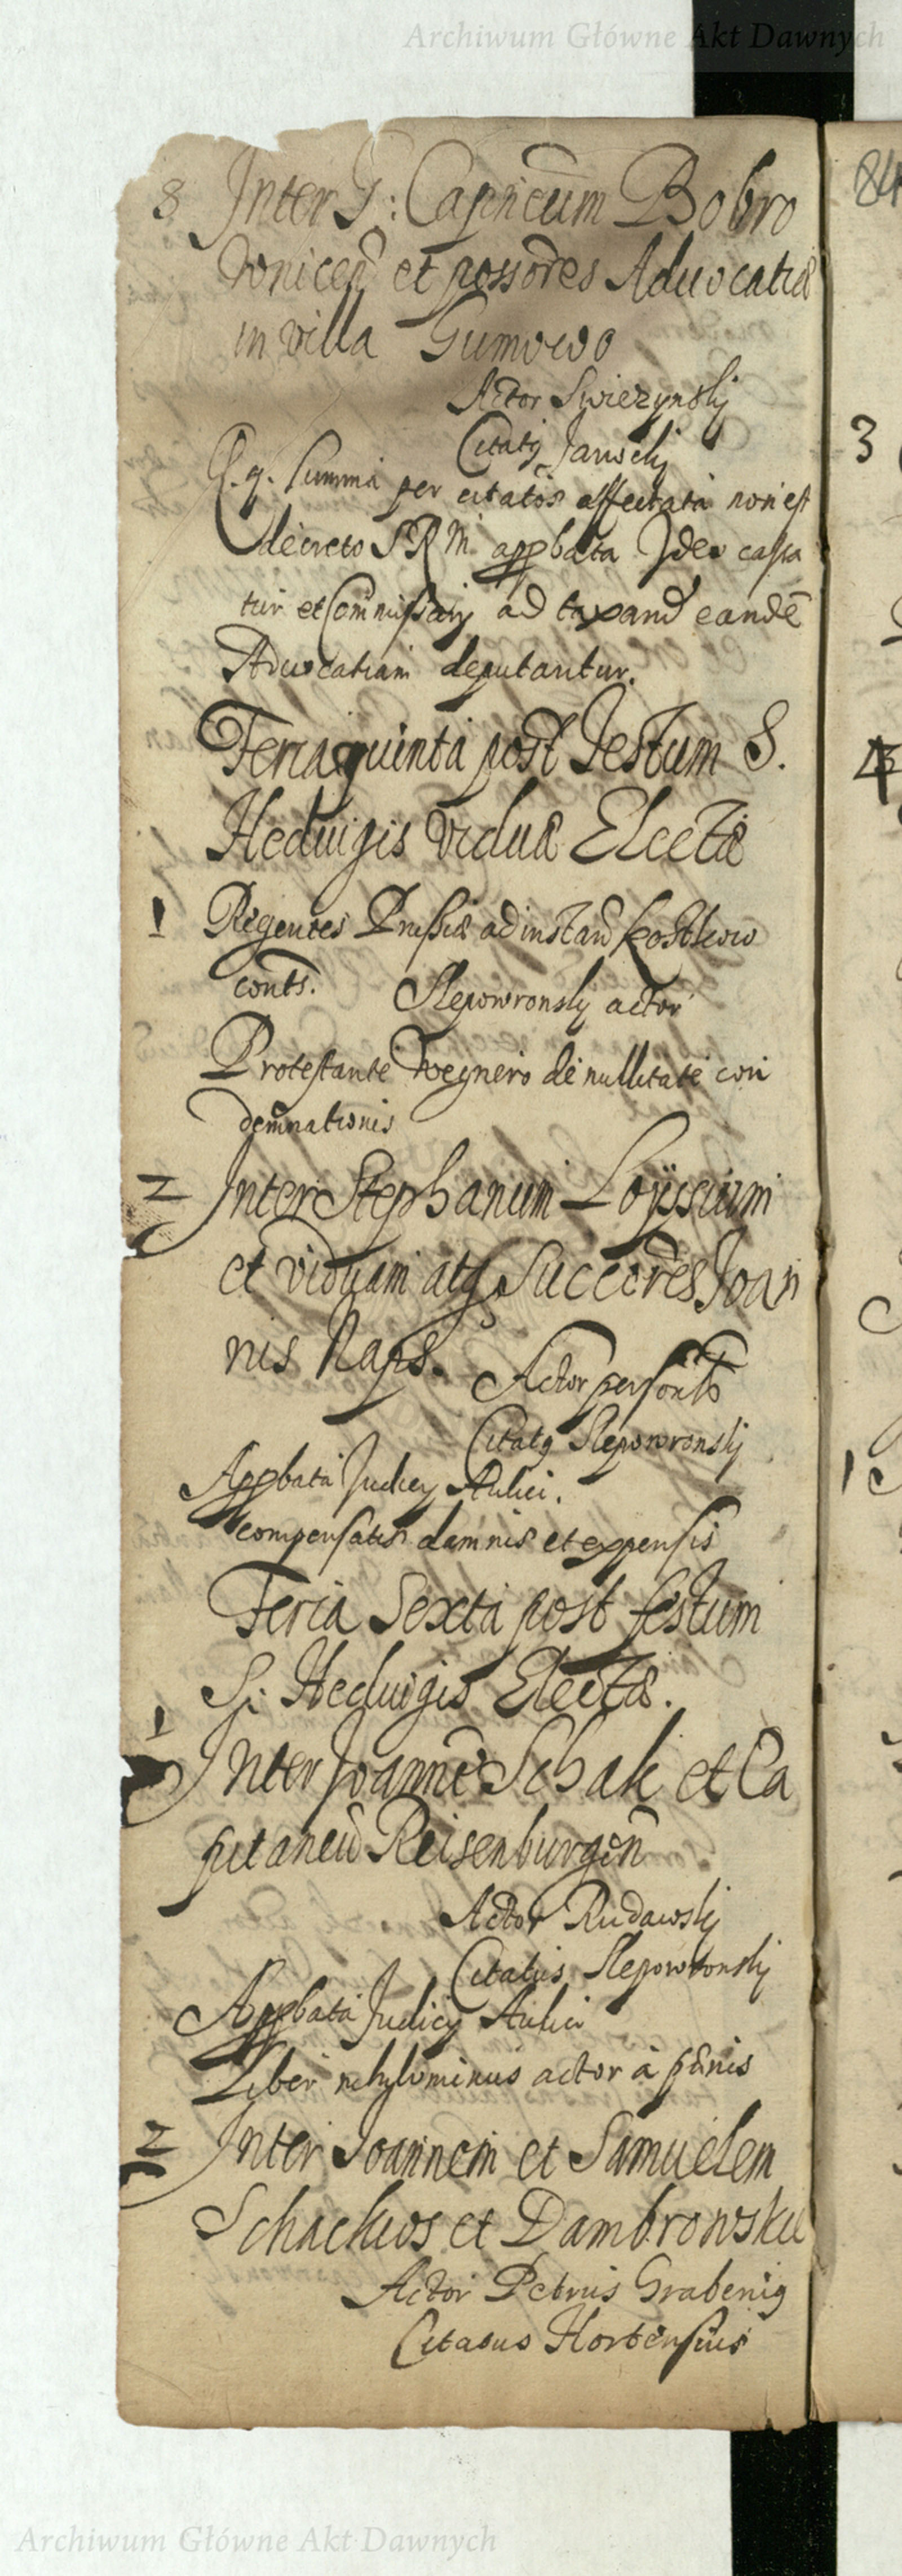 Archiwum Główne Akt Dawnych
8 Inter G: Capneum Bobro
wnicen et possores Advocatiæ
in villa Gumowo
Actor Swiezynskj
Citatq JanSchj
q. Summa per citatos affectata non est
decreto S R M appbata Ideo cassa
tur et Commissarij ad taxand eandē
Advocatiam deputantur.
Feria quinta post Festum S.
Hedwigis viduæ Electæ
1 Regentes Prussiæ ad instan Kostkow
conts. Slepowronskj actor
Protestante Wegnero de nullitate con
demnationis
2 Inter Stephanum Loÿssium
et viduam atq Succcores Joan
nis Raps. Actor personts
Citatq Slepowronskj
Appbata Judicij Aulici.
compensatis damnis et expensis
Feria Sexta post festum
S: Hedwigis Electæ.
1 Inter Joannē Schak et Ca
pitaneū Reisenburgen
Actor Rudawskj
Citatus Slepowronskj
Appbata Judicij Aulici
Liber nihylominus actor à pænis
2 Inter Joannem et Samuelem
Schackios et Dambrowsku
Actor Petrus Grabenig
Citatus Hortensius
84
3
4
1
Archiwum Główne Akt Dawnych